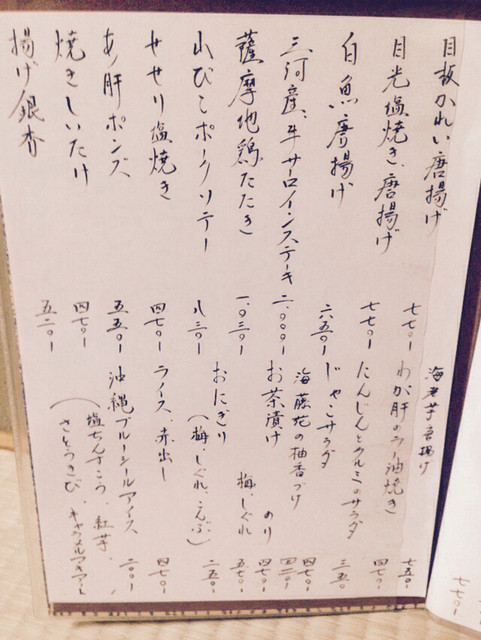 目板かれい唐揚げ 七七〇ー
目光塩焼き、唐揚げ 七七〇ー
白魚唐揚げ 六五〇ー
三河産、牛サーロインステーキ 二、〇〇〇ー
薩摩地鶏たたき 一、〇三〇ー
山びこポークソテー 八三〇ー
せせり塩焼き 四七〇ー
あん肝ポンズ 五五〇ー
焼きしいたけ 四七〇ー
揚げ銀杏 五二〇ー
海老芋唐揚げ
わが肝のラー油焼き 七五〇ー
にんじんとクルミのサラダ 四七〇ー
じゃこサラダ 三五〇ー
海藤花の柚香づけ 四七〇ー
お茶漬け のり 四二〇ー
梅、しぐれ 五七〇ー
おにぎり
(梅、しぐれ、こんぶ) 二五〇ー
ライス、赤出し 四七〇ー
沖縄ブルーシールアイス 二〇〇ー
(塩ちんすこう、紅芋、
さとうきび、
七七〇ー